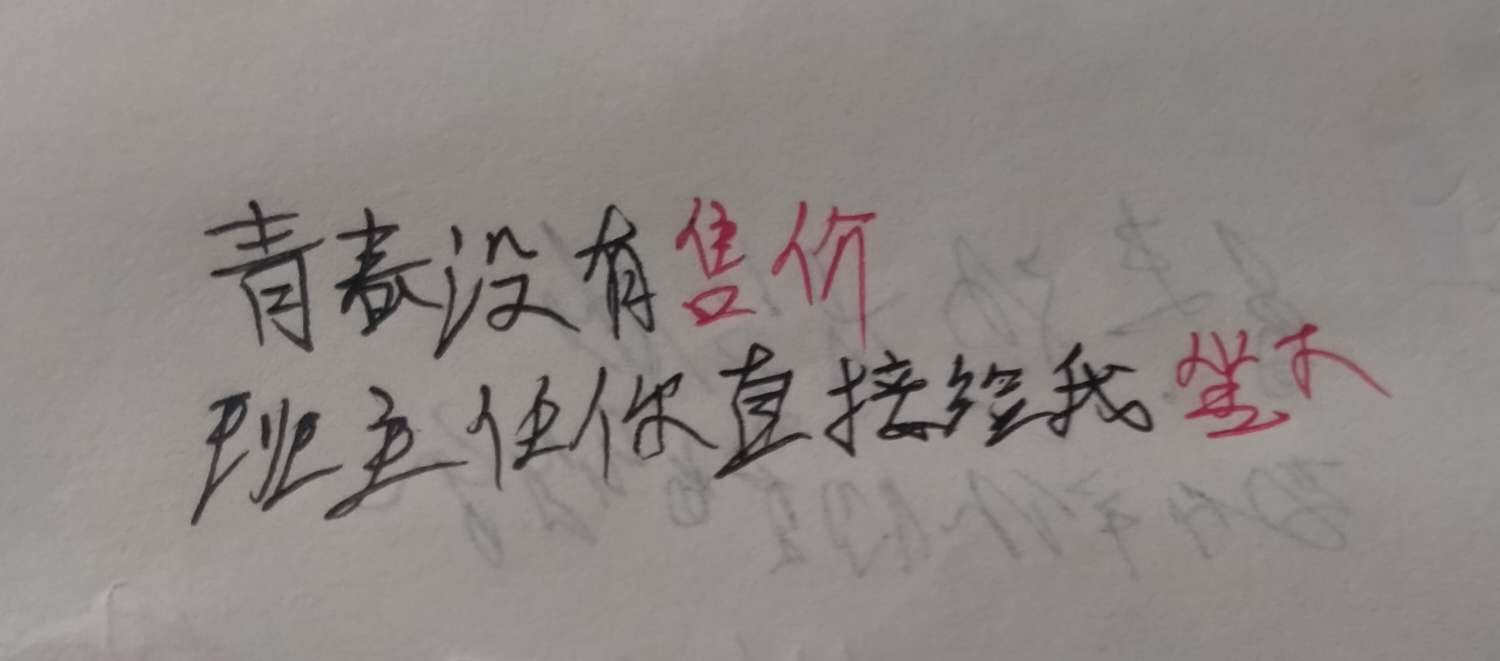 青春没有售价
班主任你直接给我坐下